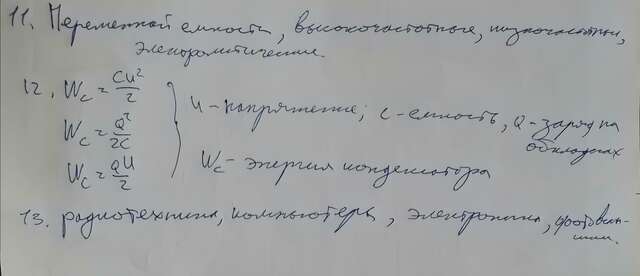 11. Переменной емкости, высокочастотные, низкочастотные,
электролитические.
12. Wc = CU²/2
Wc = Q²/2C
Wc = QU/2
U - напряжение; C - емкость, Q - заряд на
обкладках
Wc - энергия конденсатора
13. радиотехника, компьютеры, электроника, фотовспышки.